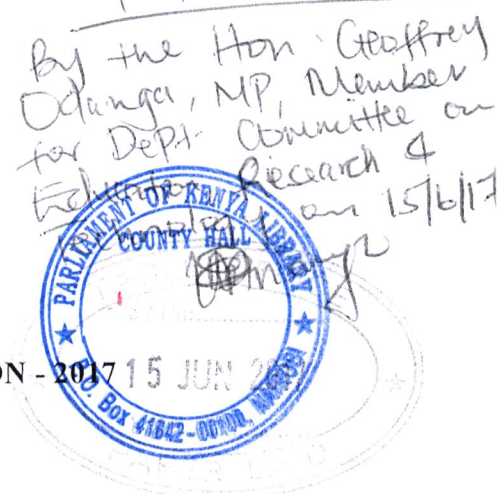 By the Hon. Geoffrey
Odanga, MP, Member
for Dept. Committee on
Education Research &
on 15/6/17
PARLIAMENT OF KENYA LIBRARY
COUNTY HALL
ON - 2017
15 JUN
P.O. Box 41842-00100, NAIROBI